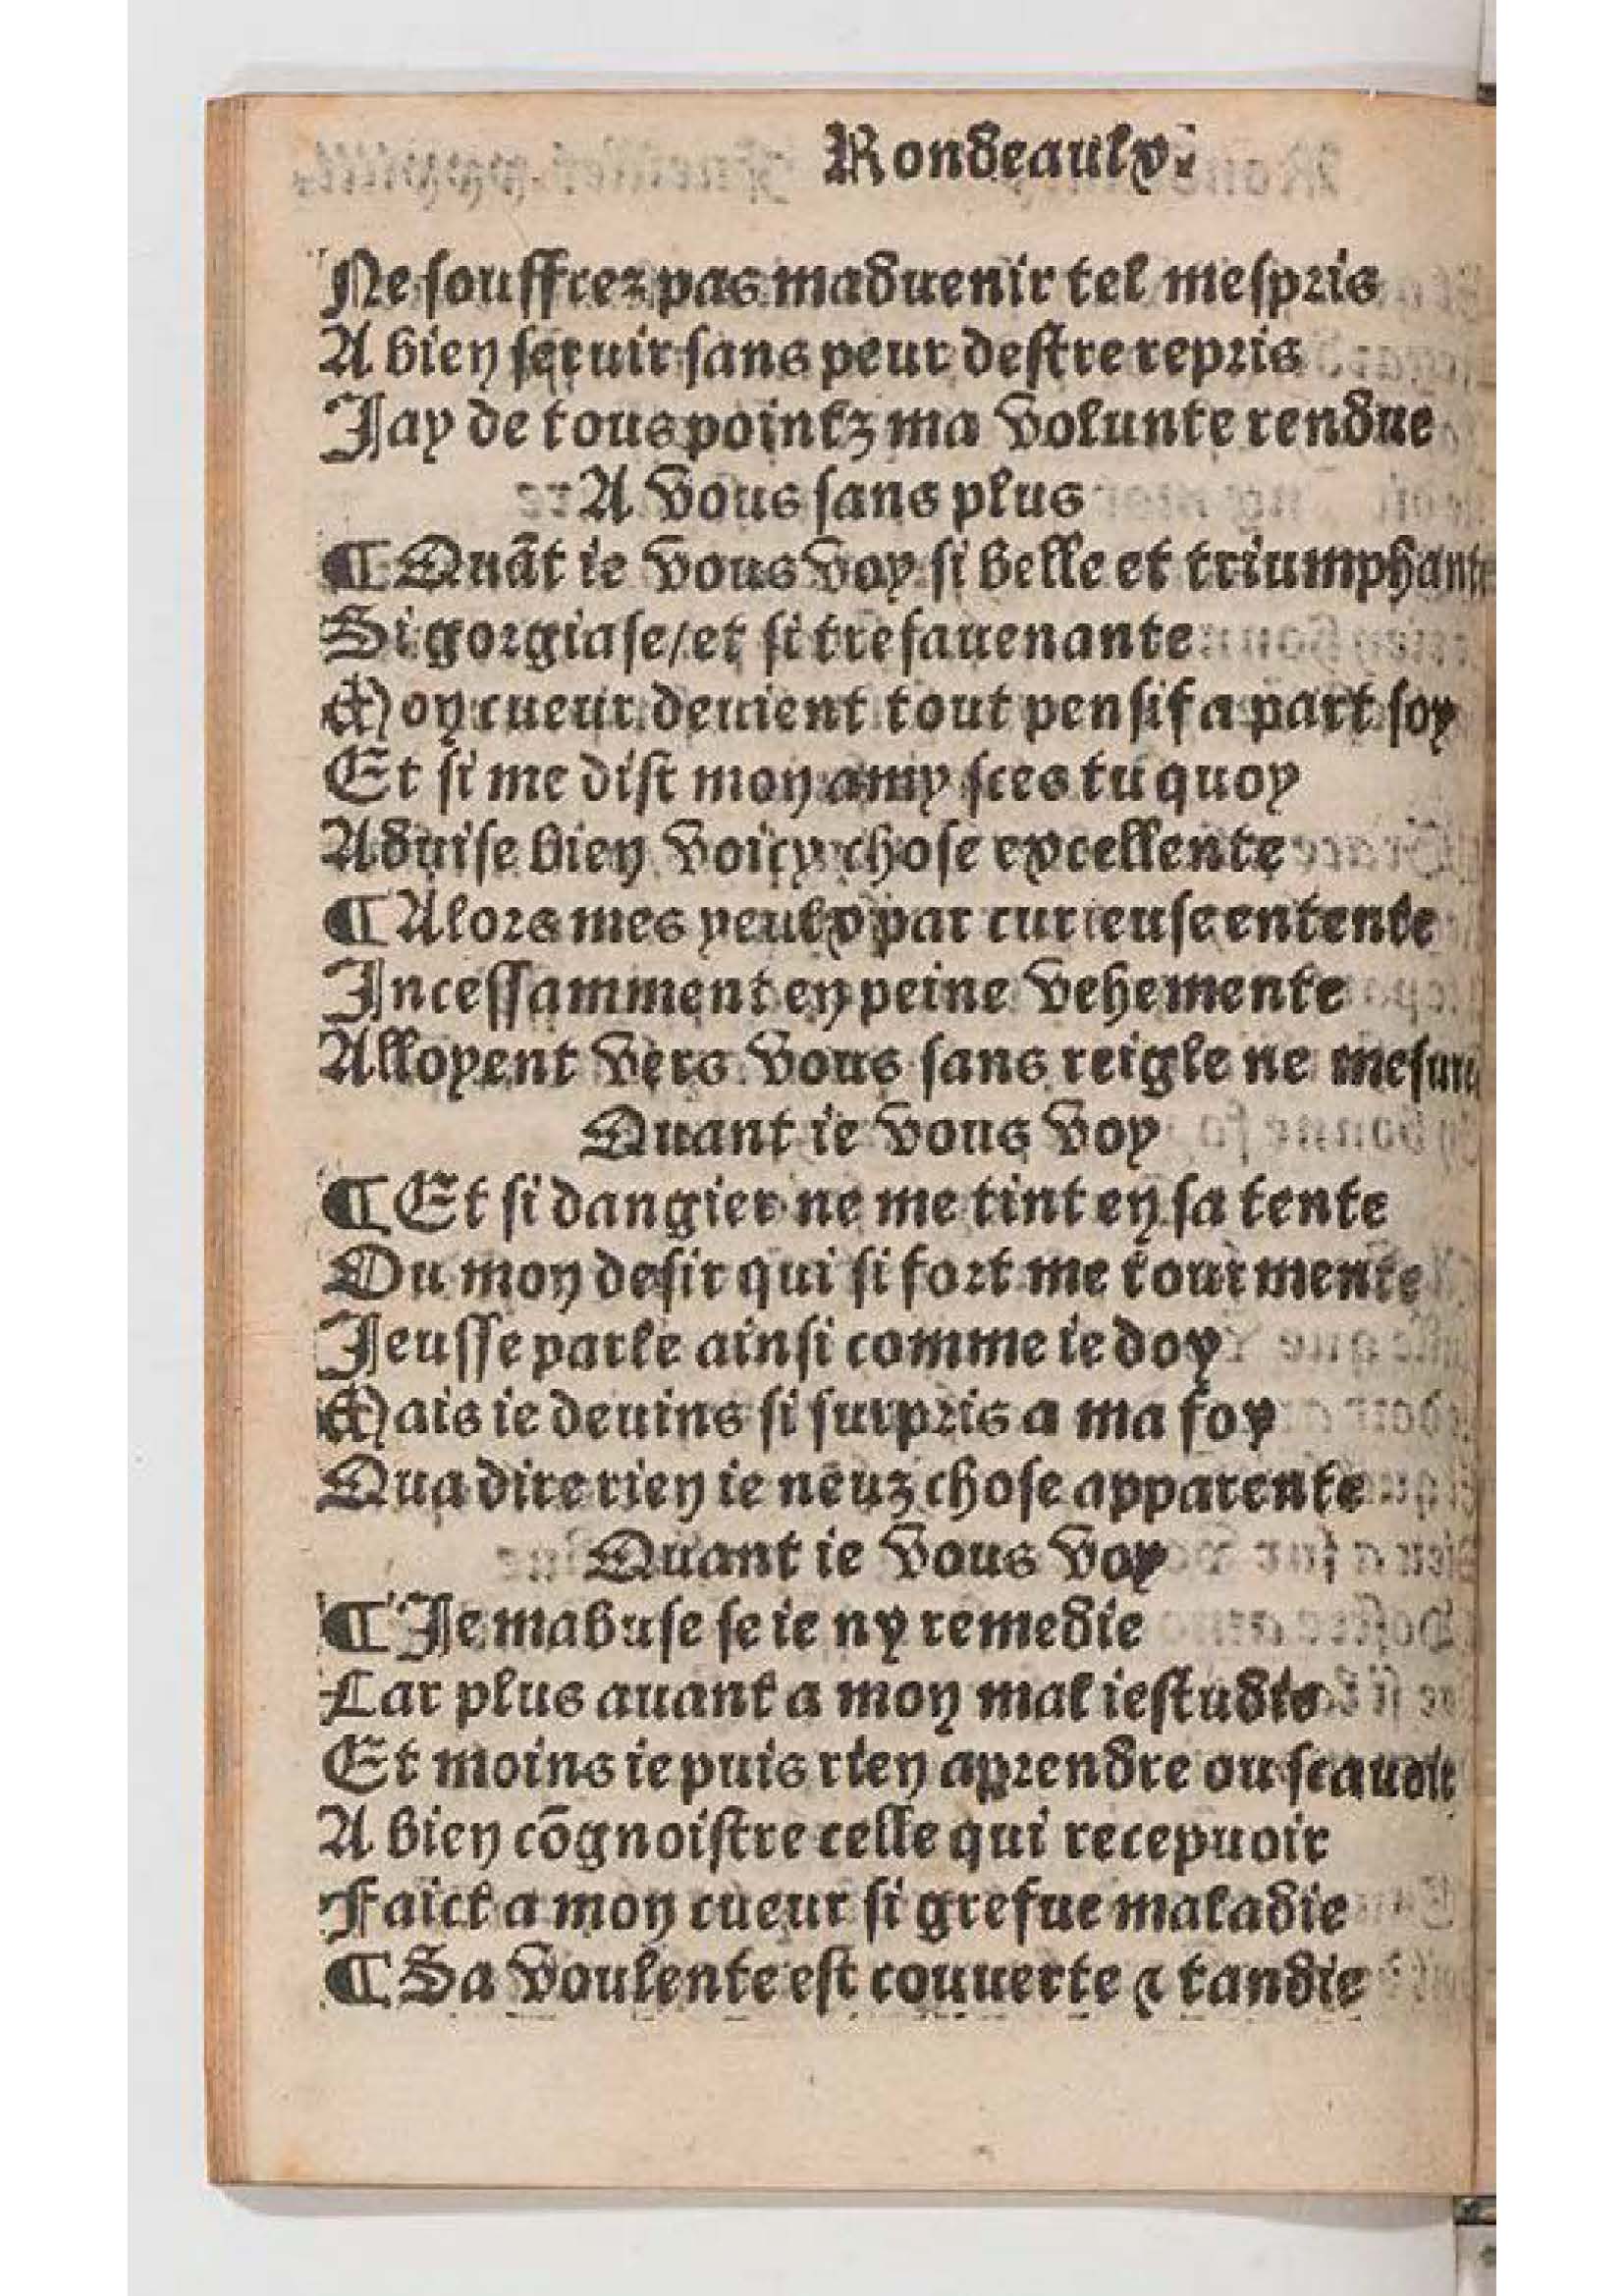 Rondeaulx.
Ne souffrez pas maduenir tel mespris
A bien seruir sans peur destre repris
Jay de tous pointz ma volunte rendue
A vous sans plus
¶ Quāt ie vous voy si belle et triumphante
Si gorgiase/et si tresauenante
Mon cueur deuient tout pensif a part soy
Et si me dist mon amy sces tu quoy
Aduise bien voicy chose excellente
¶ Alors mes yeulx par curieuse entente
Incessamment en peine vehemente
Alloyent vers vous sans reigle ne mesure
Quant ie vous voy
¶ Et si dangier ne me tint en sa tente
Ou mon desir qui si fort me tourmente
Jeusse parle ainsi comme ie doy
Mais ie deuins si surpris a ma foy
Qua dire rien ie neuz chose apparente
Quant ie vous voy
¶ Je mabuse se ie ny remedie
Car plus auant a mon mal iestudie
Et moins ie puis rien aprendre ou scauoir
A bien cōgnoistre celle qui recepuoir
Faict a mon cueur si grefue maladie
¶ Sa voulente est couuerte ⁊ tandie